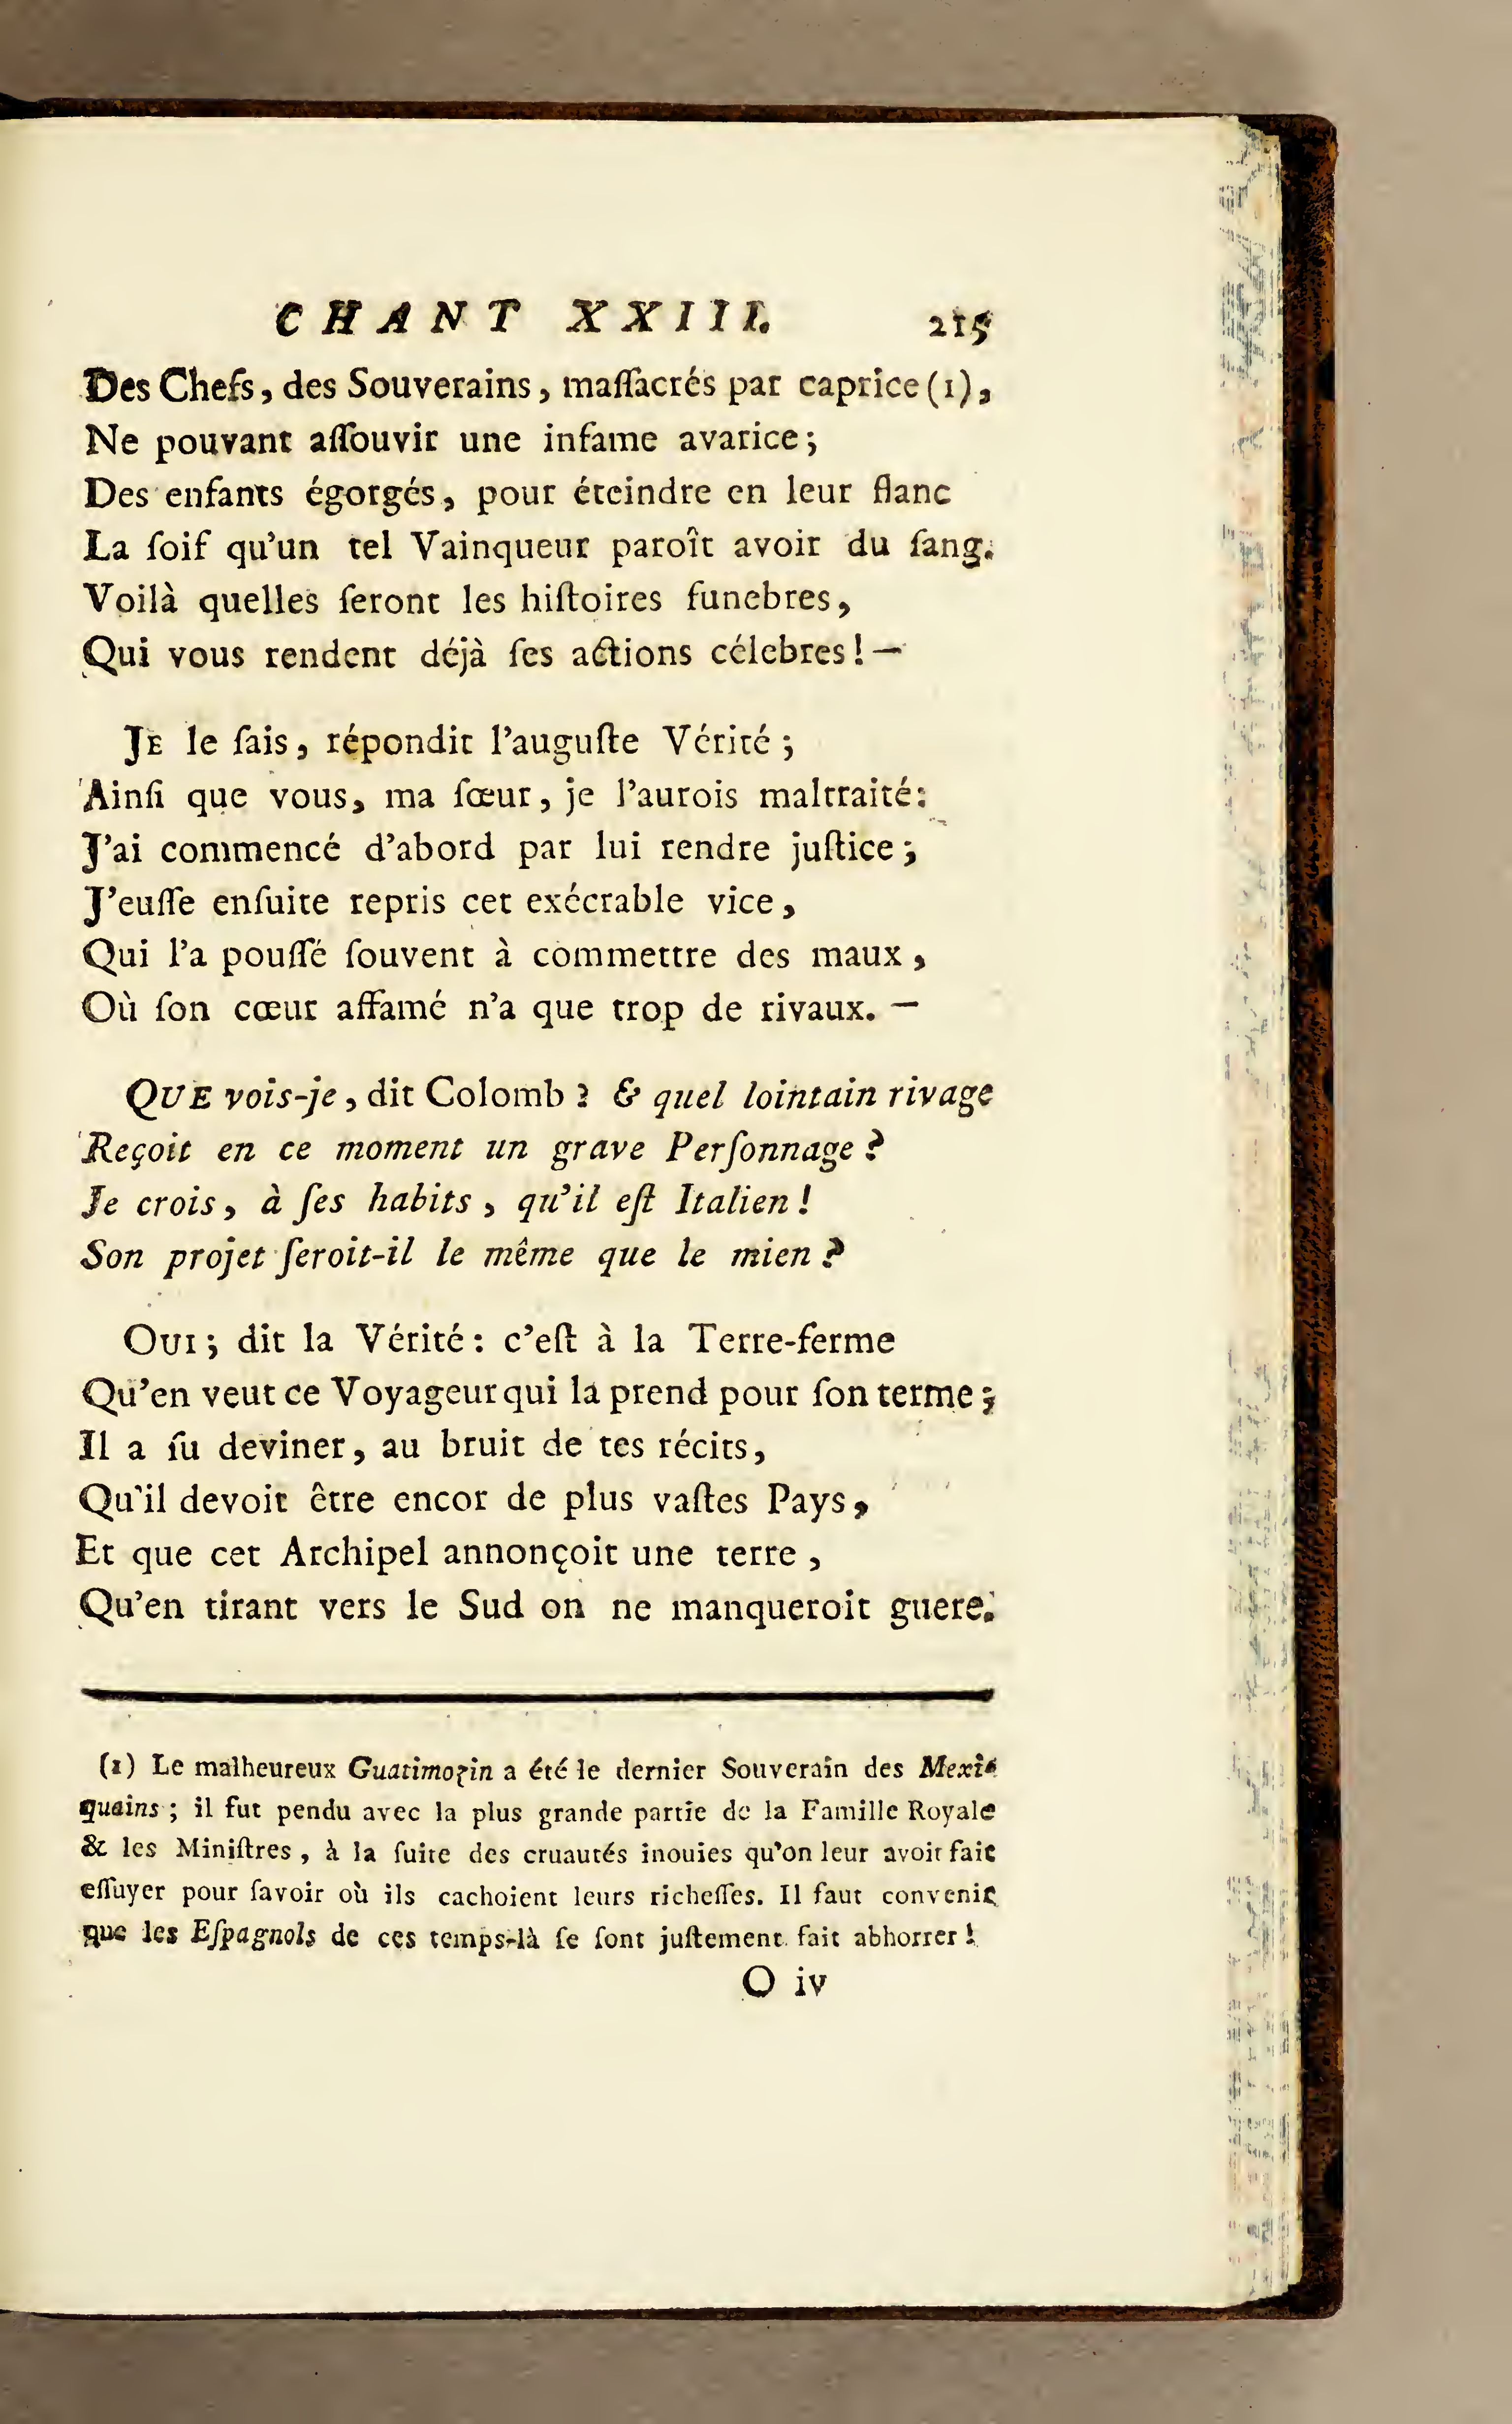 CHANT XXIII. 215
Des Chefs, des Souverains, maſſacrés par caprice (1),
Ne pouvant aſſouvir une infame avarice;
Des enfants égorgés, pour éteindre en leur flanc
La ſoif qu'un tel Vainqueur paroît avoir du ſang.
Voilà quelles ſeront les hiſtoires funebres,
Qui vous rendent déjà ſes actions célebres! —
JE le ſais, répondit l'auguſte Vérité;
Ainſi que vous, ma ſœur, je l'aurois maltraité:
J'ai commencé d'abord par lui rendre juſtice;
J'euſſe enſuite repris cet exécrable vice,
Qui l'a pouſſé ſouvent à commettre des maux,
Où ſon cœur affamé n'a que trop de rivaux. —
QUE vois-je, dit Colomb? & quel lointain rivage
Reçoit en ce moment un grave Perſonnage?
Je crois, à ſes habits, qu'il eſt Italien!
Son projet ſeroit-il le même que le mien?
OUI; dit la Vérité: c'eſt à la Terre-ferme
Qu'en veut ce Voyageur qui la prend pour ſon terme;
Il a ſu deviner, au bruit de tes récits,
Qu'il devoit être encor de plus vaſtes Pays,
Et que cet Archipel annonçoit une terre,
Qu'en tirant vers le Sud on ne manqueroit guere.
(1) Le malheureux Guatimozin a été le dernier Souverain des Mexi-
quains; il fut pendu avec la plus grande partie de la Famille Royale
& les Miniſtres, à la ſuite des cruautés inouies qu'on leur avoit fait
eſſuyer pour ſavoir où ils cachoient leurs richeſſes. Il faut convenir
que les Eſpagnols de ces temps-là ſe ſont juſtement fait abhorrer!
O iv